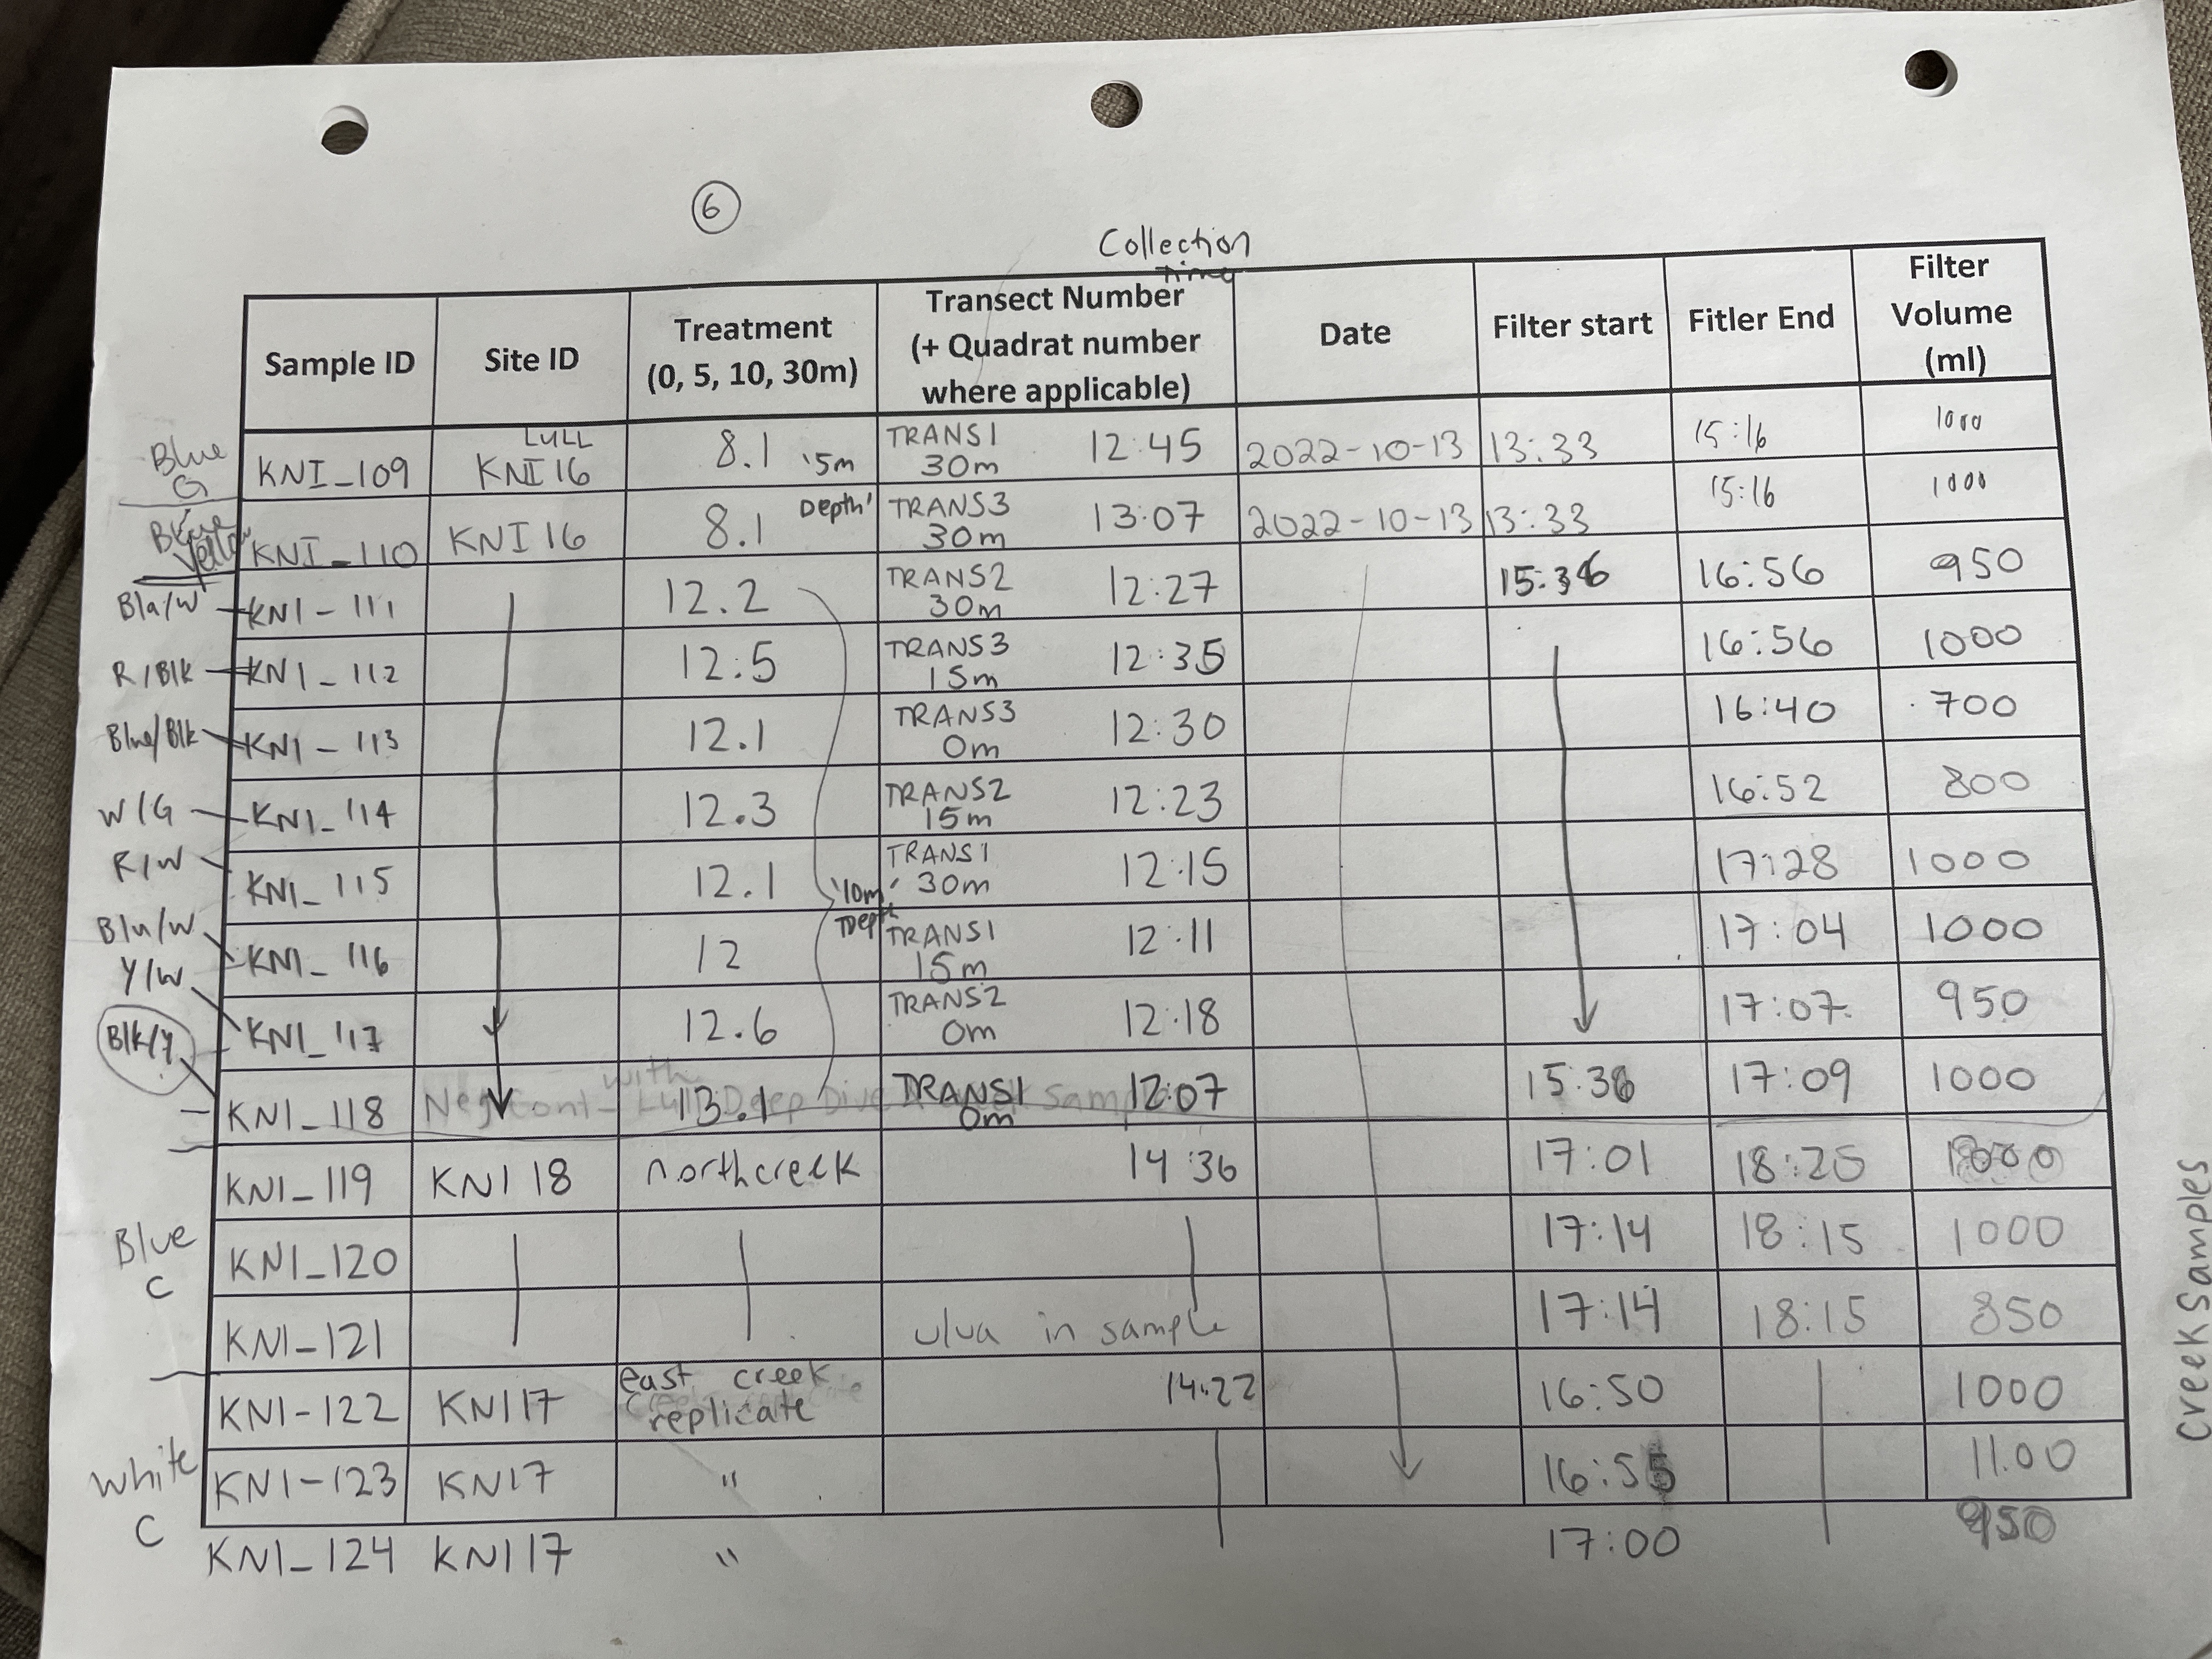 6
Collection
Time
Sample ID | Site ID | Treatment (0, 5, 10, 30m) | Transect Number (+ Quadrat number where applicable) | Date | Filter start | Fitler End | Filter Volume (ml)
Blue G | KNI_109 | LULL KNI16 | 8.1 '5m | TRANS1 30m 12:45 | 2022-10-13 | 13:33 | 15:16 | 1000
KNI_110 | KNI16 | 8.1 Depth' | TRANS3 30m 13:07 | 2022-10-13 | 13:33 | 15:16 | 1000
Bla/W | KNI-111 | 12.2 | TRANS2 30m 12:27 | 15:36 | 16:56 | 950
R/Blk | KNI_112 | 12.5 | TRANS3 15m 12:35 | 16:56 | 1000
Blue/Blk | KNI_113 | 12.1 | TRANS3 0m 12:30 | 16:40 | 700
W/G | KNI_114 | 12.3 | TRANS2 15m 12:23 | 16:52 | 800
R/W | KNI_115 | 12.1 '10m' | TRANS1 30m 12:15 | 17:28 | 1000
Blu/W | KNI_116 | 12 Depth | TRANS1 15m 12:11 | 17:04 | 1000
Y/W | KNI_117 | 12.6 | TRANS2 0m 12:18 | 17:07 | 950
Blk/Y | KNI_118 | 13.1 | TRANS1 0m 12:07 | 15:38 | 17:09 | 1000
KNI_119 | KNI18 | north creek | 14:36 | 17:01 | 18:25 | 1000
Blue C | KNI_120 | 17:14 | 18:15 | 1000
KNI_121 | ulva in sample | 17:14 | 18:15 | 850
KNI-122 | KNI17 | east creek replicate | 14:22 | 16:50 | 1000
White C | KNI-123 | KNI7 | " | 16:55 | 1100
KNI_124 | KNI17 | " | 17:00 | 950
Creek Samples